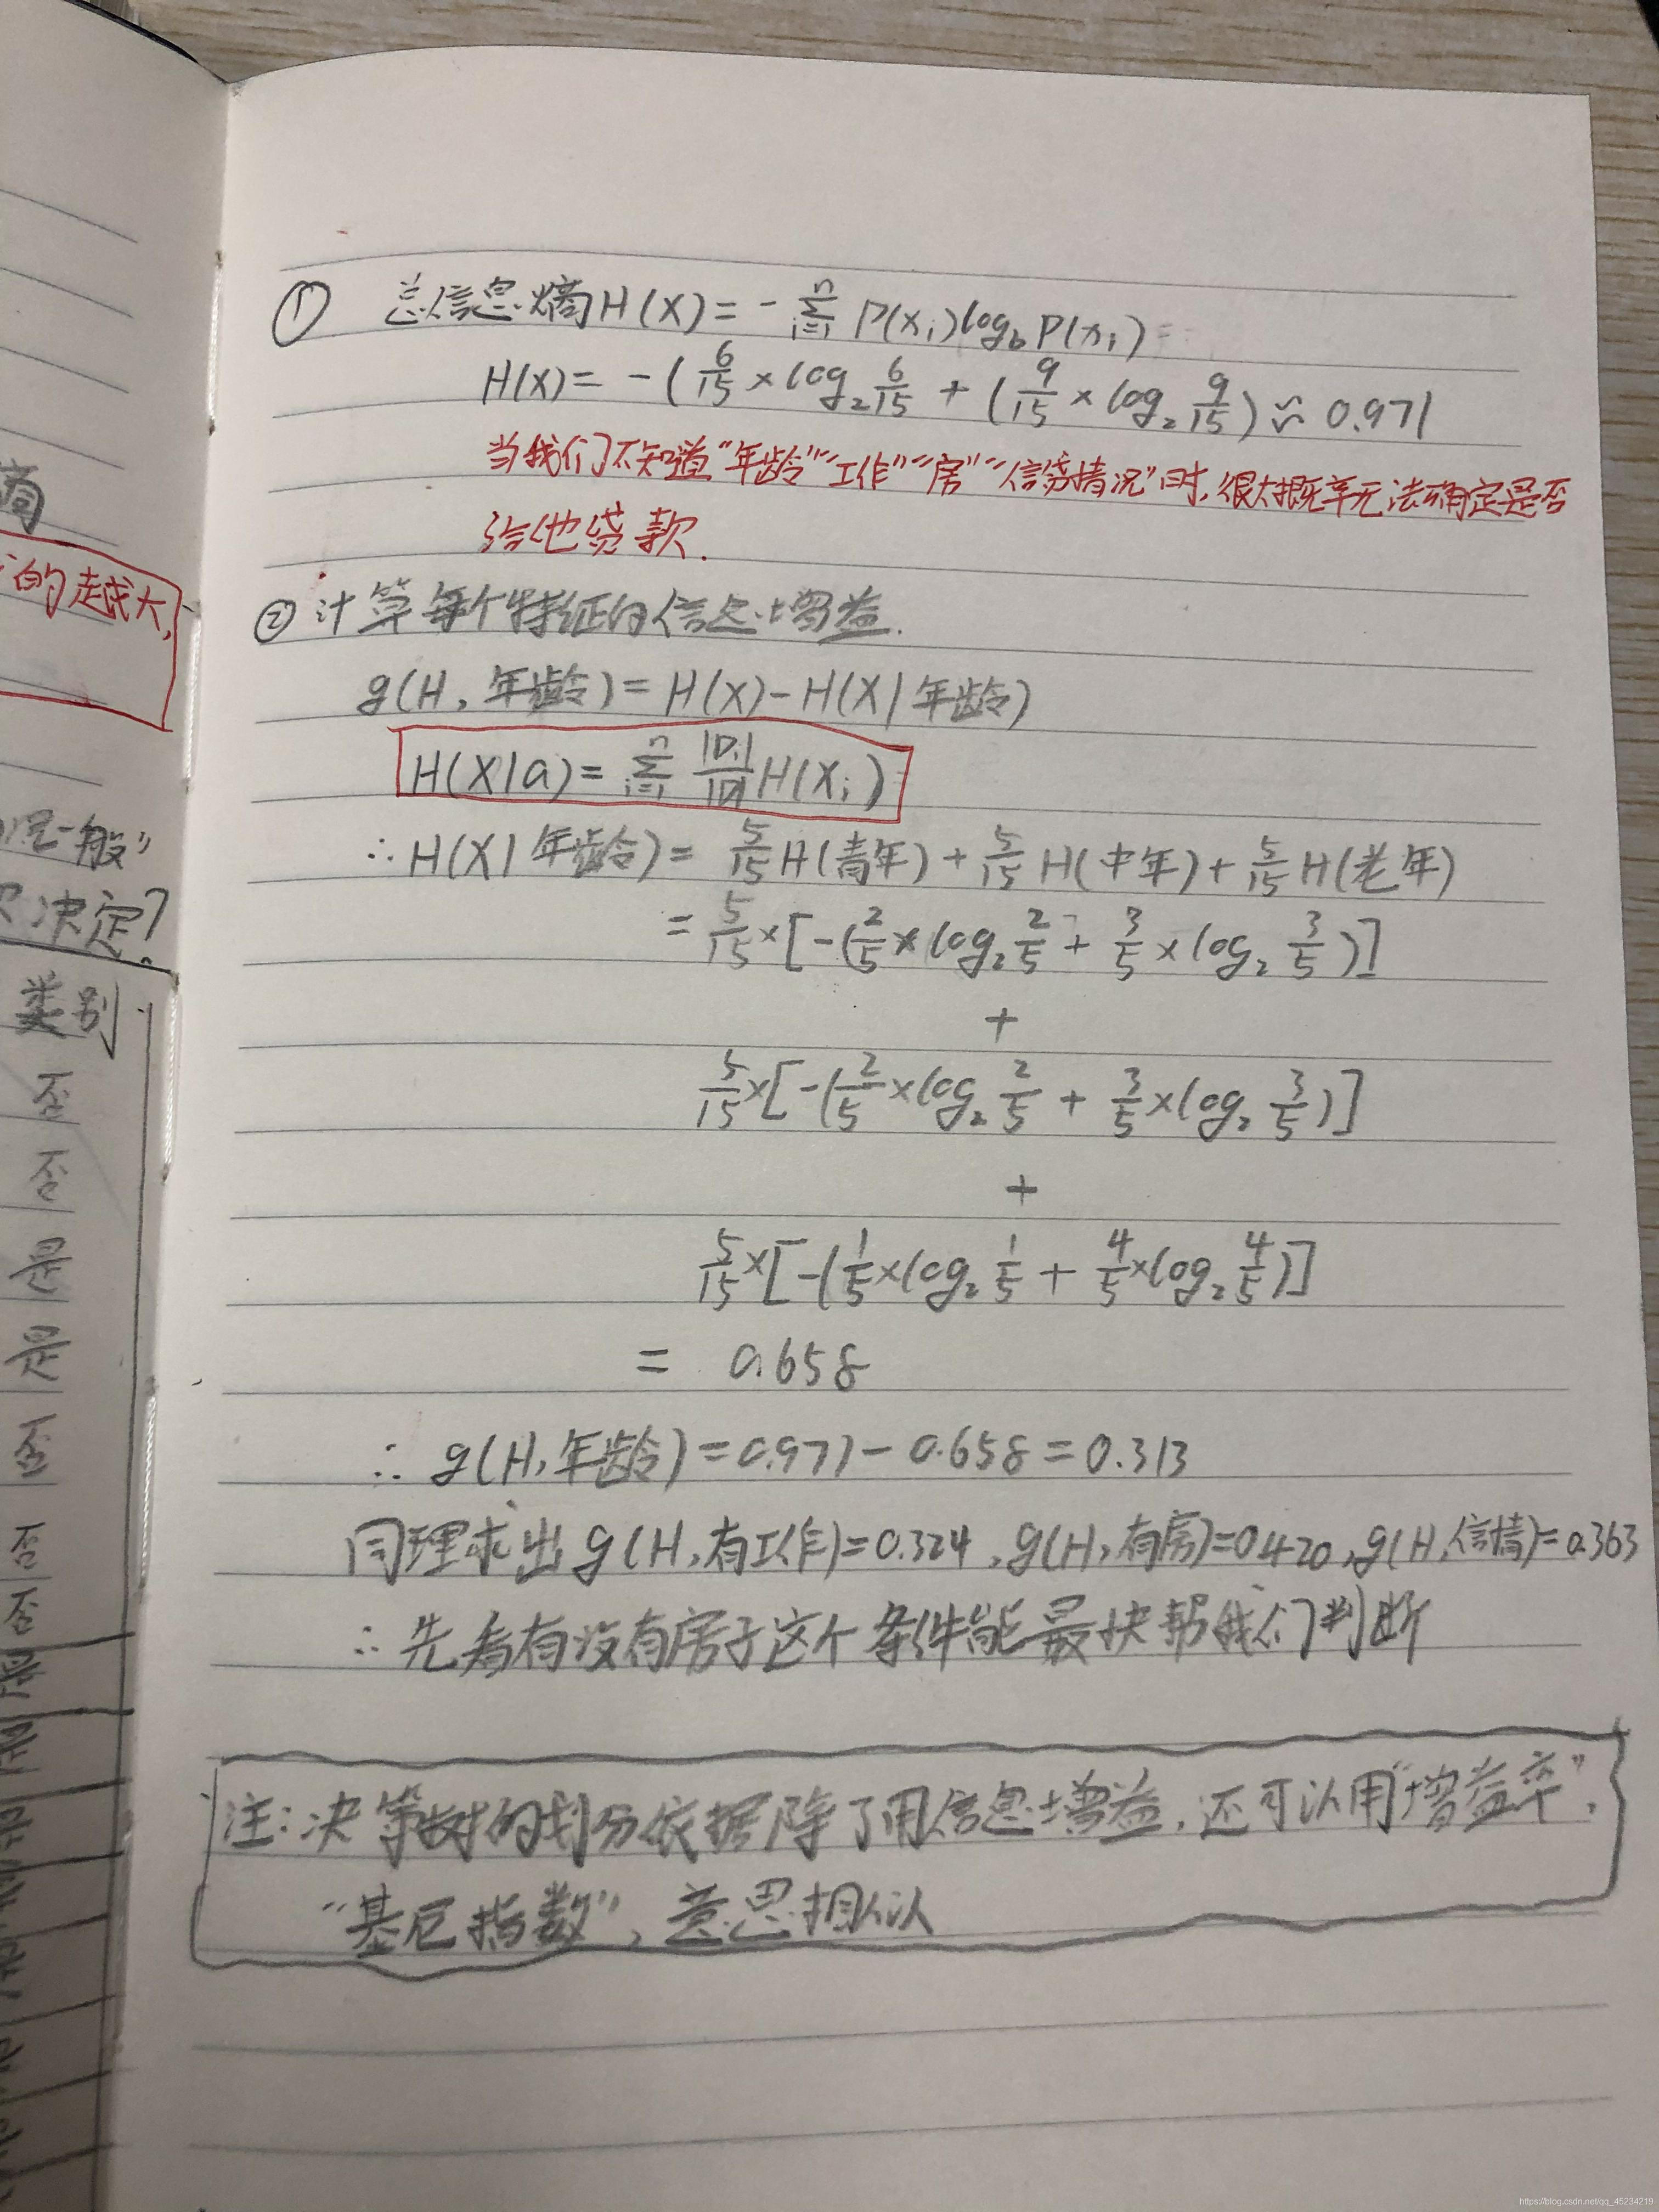 ① 总信息熵H(X) = - ∑ⁿᵢ₌₁ P(xᵢ)log_b P(xᵢ)
H(X) = - ( 6/15 × log₂ 6/15 + ( 9/15 × log₂ 9/15 ) ≈ 0.971
当我们不知道“年龄”“工作”“房”“信贷情况”时,很大概率无法确定是否
给他贷款.
② 计算每个特征的信息增益.
g(H, 年龄) = H(X) - H(X|年龄)
H(X|a) = ∑ⁿᵢ₌₁ |Dᵢ|/|D| H(Xᵢ)
∴ H(X|年龄) = 5/15 H(青年) + 5/15 H(中年) + 5/15 H(老年)
= 5/15 × [ -( 2/5 × log₂ 2/5 + 3/5 × log₂ 3/5 ) ]
+
5/15 × [ -( 2/5 × log₂ 2/5 + 3/5 × log₂ 3/5 ) ]
+
5/15 × [ -( 1/5 × log₂ 1/5 + 4/5 × log₂ 4/5 ) ]
= 0.658
∴ g(H, 年龄) = 0.971 - 0.658 = 0.313
同理求出 g(H, 有工作) = 0.324, g(H, 有房) = 0.420, g(H, 信情) = 0.363
∴ 先看有没有房子这个条件能最快帮我们判断
注: 决策树的划分依据除了用信息增益, 还可以用“增益率”,
“基尼指数”, 意思相似
的越大,
一般”
决定?
类别
否
否
是
是
否
否
否
https://blog.csdn.net/qq_45234219